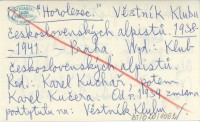 Horolezec. Věstník Klubu
československých alpistů. 1938-
-1941. Praha. Vyd.: Klub
československých alpistů.
Red.: Karel Kuchař, potem
Karel Kučera. Od r. 1939 změna
podtytulu na: Věstník Klubu